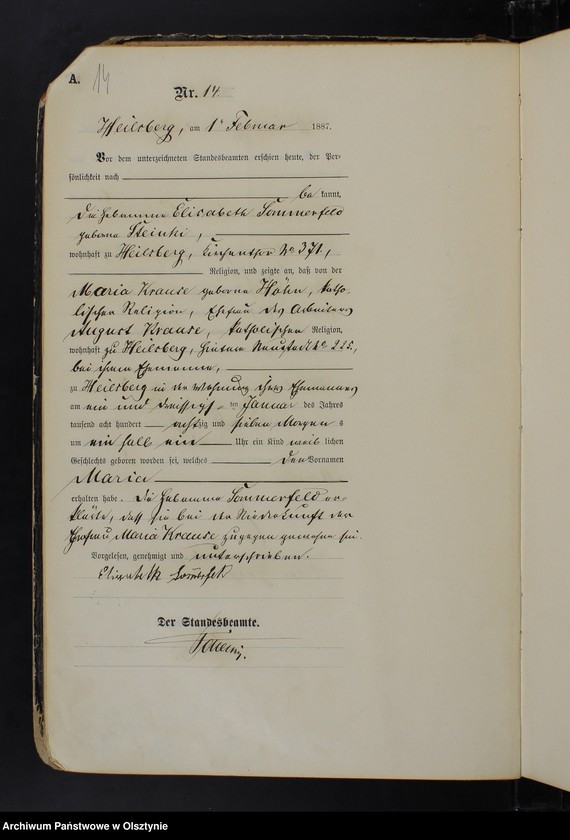 A. 14
Nr. 14
Heilsberg, am 1 Februar 1887.
Vor dem unterzeichneten Standesbeamten erschien heute, der Per-
sönlichkeit nach
be kannt,
die Hebamme Elisabeth Sommerfeld
geborne
wohnhaft zu Heilsberg, Kirchenthor No 371,
Religion, und zeigte an, daß von der
Maria Krause geborne Höhn, katho-
lischer Religion, Ehefrau des Arbeiters
August Krause, katholischer Religion,
wohnhaft zu Heilsberg, hintere Neustadt No 225,
bei ihrem Ehemanne,
zu Heilsberg in der Wohnung ihres Ehemannes
am ein und dreissigsten ten Januar des Jahres
tausend acht hundert achtzig und sieben Morgens
um ein halb ein Uhr ein Kind weib lichen
Geschlechts geboren worden sei, welches den Vornamen
Maria
erhalten habe. Die Hebamme Sommerfeld er-
klärte, daß sie bei der Niederkunft der
Ehefrau Maria Krause zugegen gewesen sei.
Vorgelesen, genehmigt und unterschrieben.
Elisabeth
Der Standesbeamte.
Archiwum Państwowe w Olsztynie